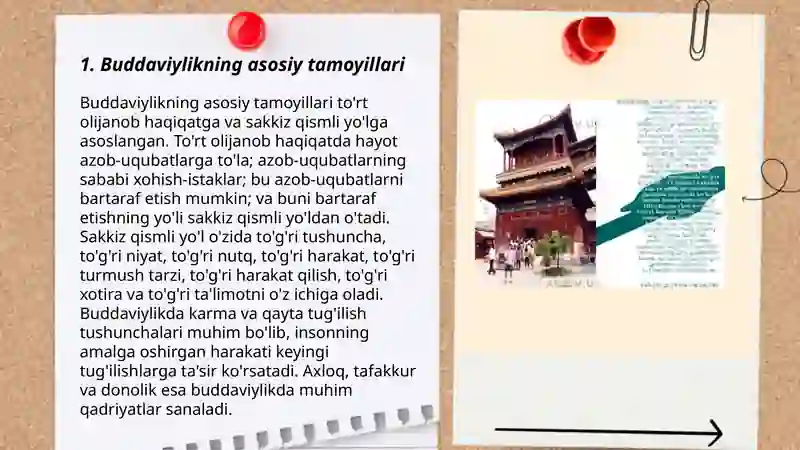 1. Buddaviylikning asosiy tamoyillari
Buddaviylikning asosiy tamoyillari to'rt
olijanob haqiqatga va sakkiz qismli yo'lga
asoslangan. To'rt olijanob haqiqatda hayot
azob-uqubatlarga to'la; azob-uqubatlarning
sababi xohish-istaklar; bu azob-uqubatlarni
bartaraf etish mumkin; va buni bartaraf
etishning yo'li sakkiz qismli yo'ldan o'tadi.
Sakkiz qismli yo'l o'zida to'g'ri tushuncha,
to'g'ri niyat, to'g'ri nutq, to'g'ri harakat, to'g'ri
turmush tarzi, to'g'ri harakat qilish, to'g'ri
xotira va to'g'ri ta'limotni o'z ichiga oladi.
Buddaviylikda karma va qayta tug'ilish
tushunchalari muhim bo'lib, insonning
amalga oshirgan harakati keyingi
tug'ilishlarga ta'sir ko'rsatadi. Axloq, tafakkur
va donolik esa buddaviylikda muhim
qadriyatlar sanaladi.